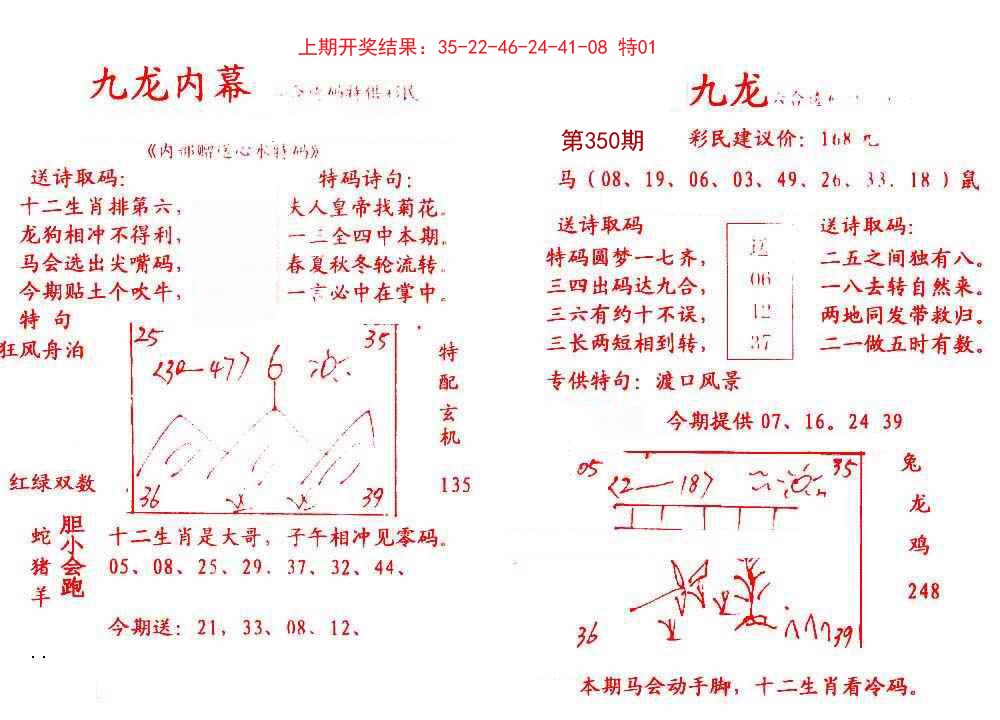 上期开奖结果：35-22-46-24-41-08 特01
九龙内幕
《内部赠送心水特码》
送诗取码：
十二生肖排第六，
龙狗相冲不得利，
马会选出尖嘴码，
今期贴土个吹牛，
特码诗句：
夫人皇帝找菊花。
一三全四中本期。
春夏秋冬轮流转。
一言必中在掌中。
特句
狂风舟泊
红绿双数
25
35
<30—47>
6
36
39
特配玄机
135
蛇猪羊
胆小会跑
十二生肖是大哥，子午相冲见零码。
05、08、25、29．37、32、44、
今期送：21，33、08．12、
..
九龙
第350期
彩民建议价：168元
马（08、19、06、03、49、26、33．18）鼠
送诗取码
特码圆梦一七齐，
三四出码达九合，
三六有约十不误，
三长两短相到转，
送
06
12
37
送诗取码：
二五之间独有八。
一八去转自然来。
两地同发带救归。
二一做五时有数。
专供特句：渡口风景
今期提供07、16。24 39
05
<2—18>
35
36
39
兔
龙
鸡
248
本期马会动手脚，十二生肖看冷码。